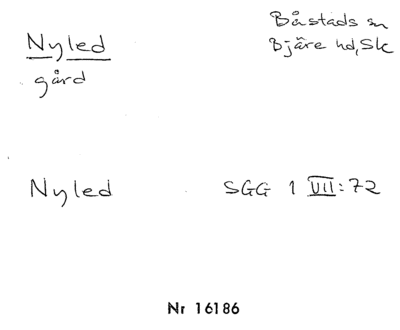 Nyled
Båstads sn
Bjäre hd, Sk
gård
Nyled SGG 1 VII:72
Nr 16186